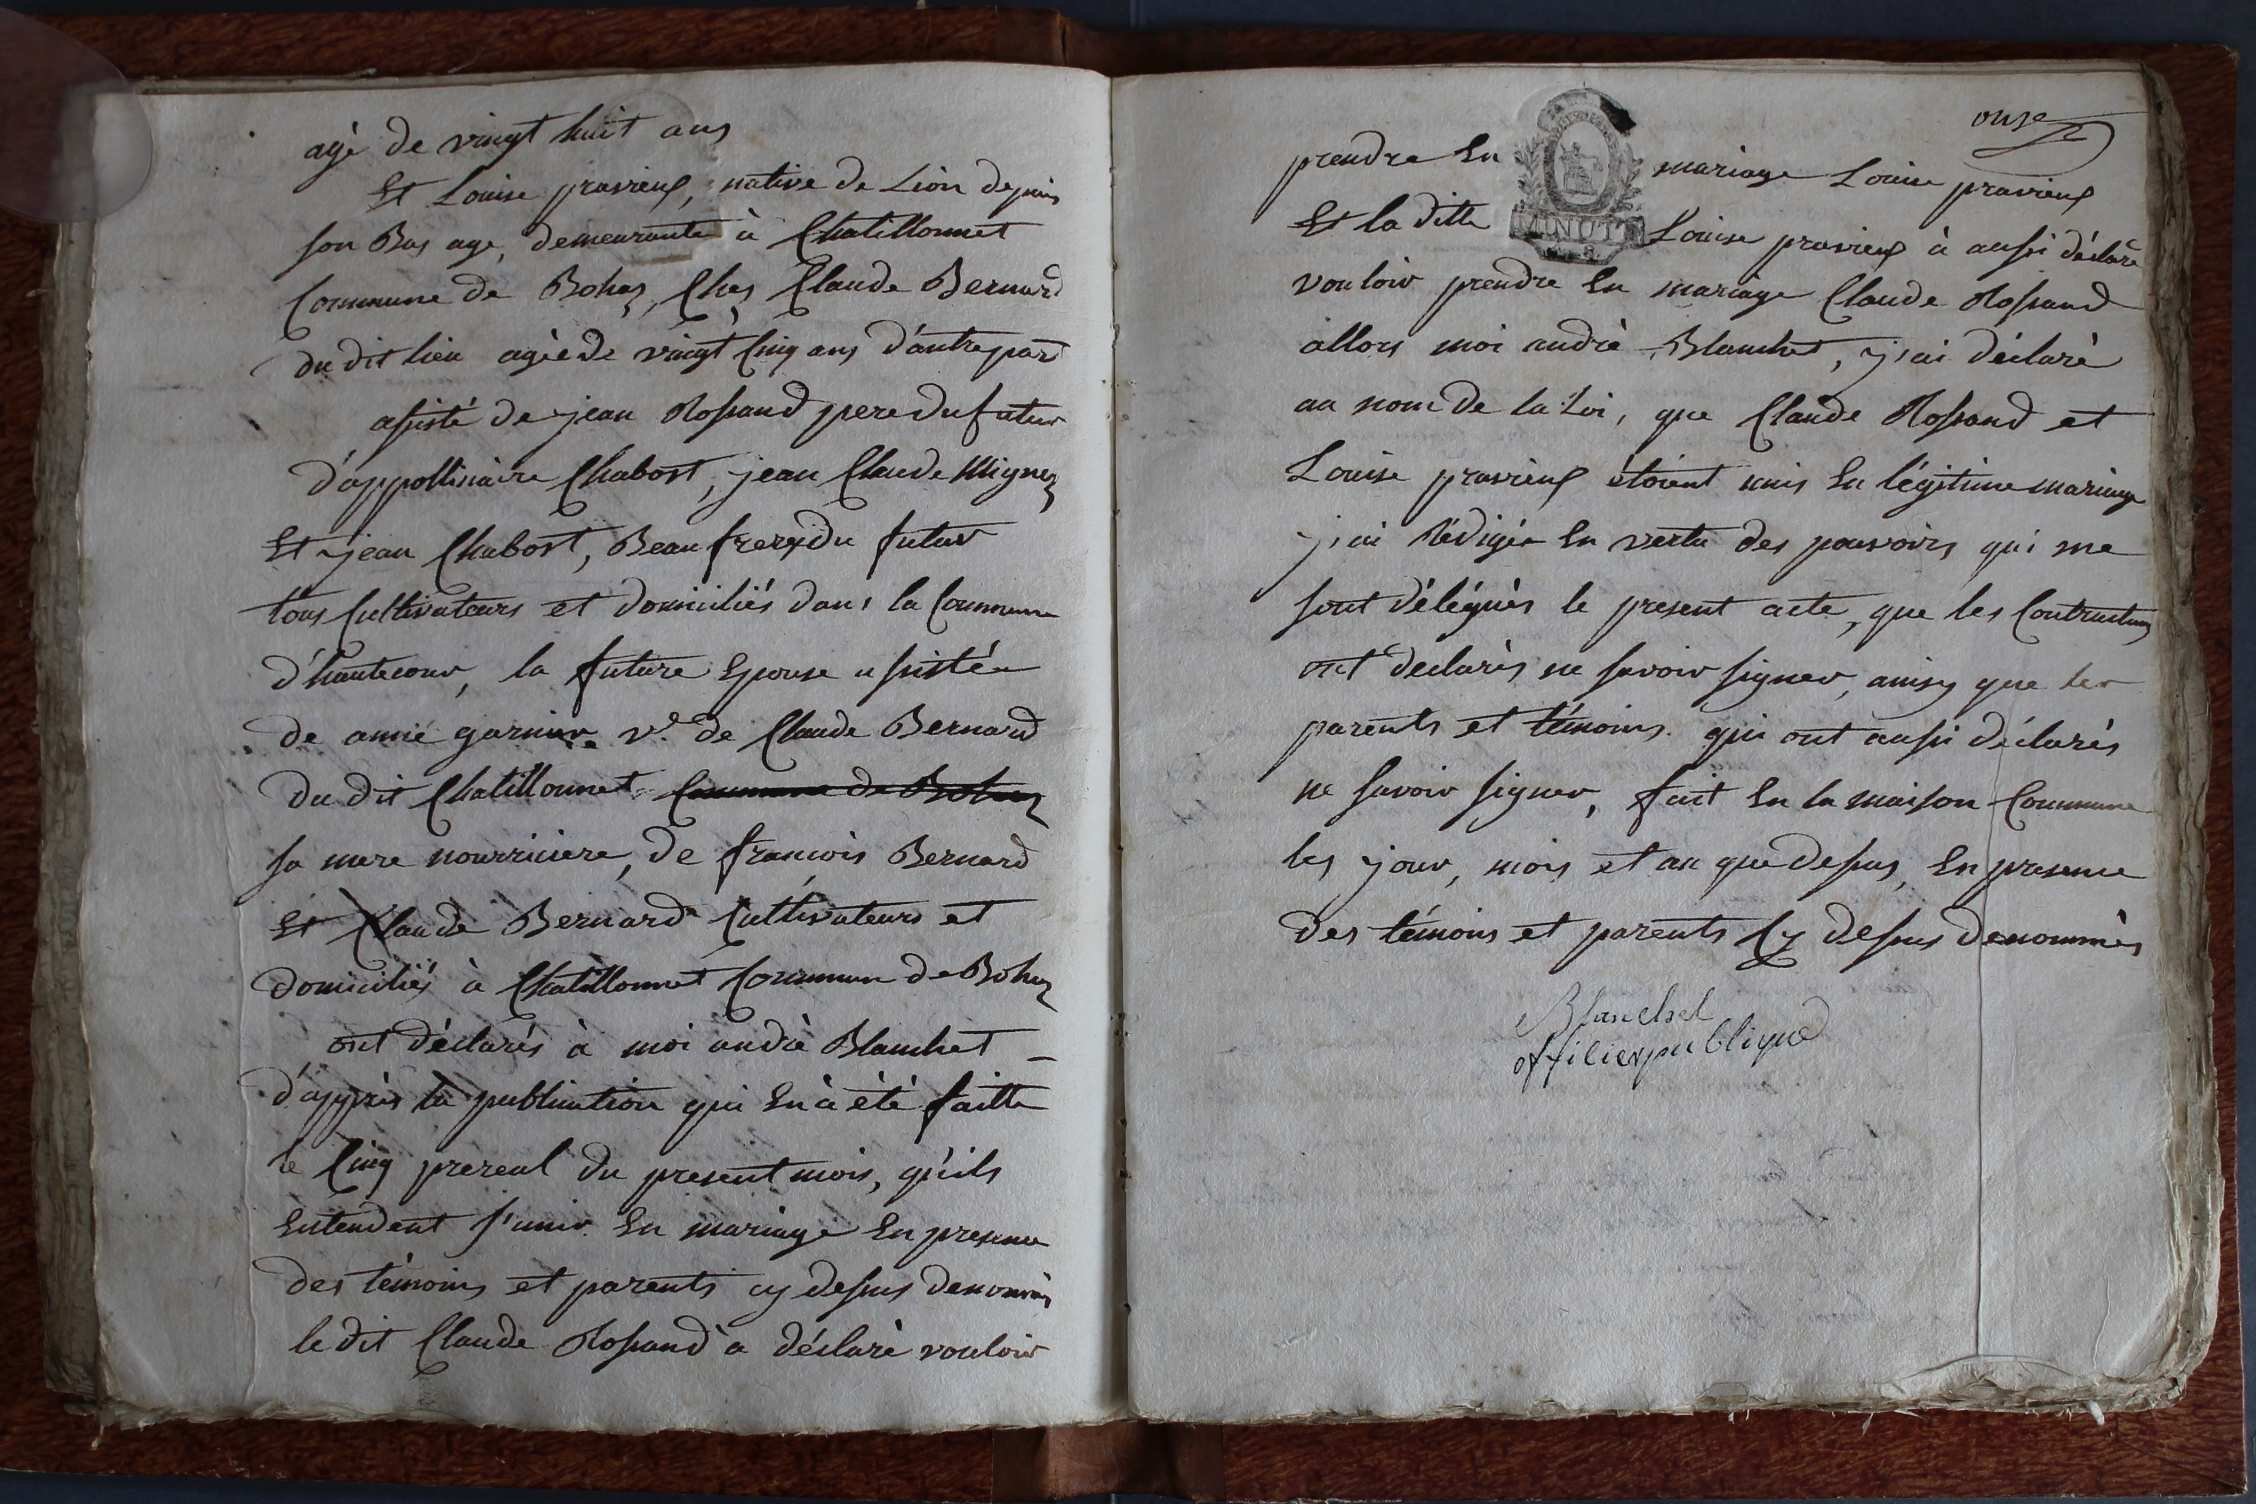 agé de vingt huit ans
Et Louise pravieux, native de Lion depuis
son Bas age, demeurante à Chatillonnet
Commune de Bohas, Chez Claude Bernard
du dit lieu agée de vingt Cinq ans d'autre part
assisté de jean Rossand pere du futur
d'appollinaire Chabost, jean Claude Mignez
Et jean Chabost, Beau freres du futur
tous Cultivateurs et domiciliés dans la Commune
d'hautecour, la future Epouse assistée
de anne garnier ve. de Claude Bernard
du dit Chatillonnet Commune de Bohas
sa mere nourriciere, de francois Bernard
Et Claude Bernard Cultivateurs et
domiciliés à Chatillonnet Commune de Bohas
ont déclarés à moi andré Blanchet
d'apprés la publication qui En à été faitte
le Cinq prereal du present mois, qu'ils
Entendent s'unir En mariage En presence
des témoins et parents cy dessus denommés
le dit Claude Rossand a déclaré vouloir
onze
prendre En mariage Louise pravieux
Et la ditte Louise pravieux à aussi déclaré
MINUTE
vouloir prendre En mariage Claude Rossand
allors moi andré Blanchet, j'ai déclaré
au nom de la Loi, que Claude Rossand et
Louise pravieux étoient unis En légitime mariage
j'ai Rédigér En vertu des pouvoirs qui me
sont délégués le present acte, que les Contractans
ont declarés ne savoir signer, ainsy que les
parents et témoins qui ont aussi déclarés
ne savoir signer, fait En la maison Commune
les jour, mois et an que dessus, En presence
des témoins et parents Cy dessus denommés
Blanchet
offilier publique